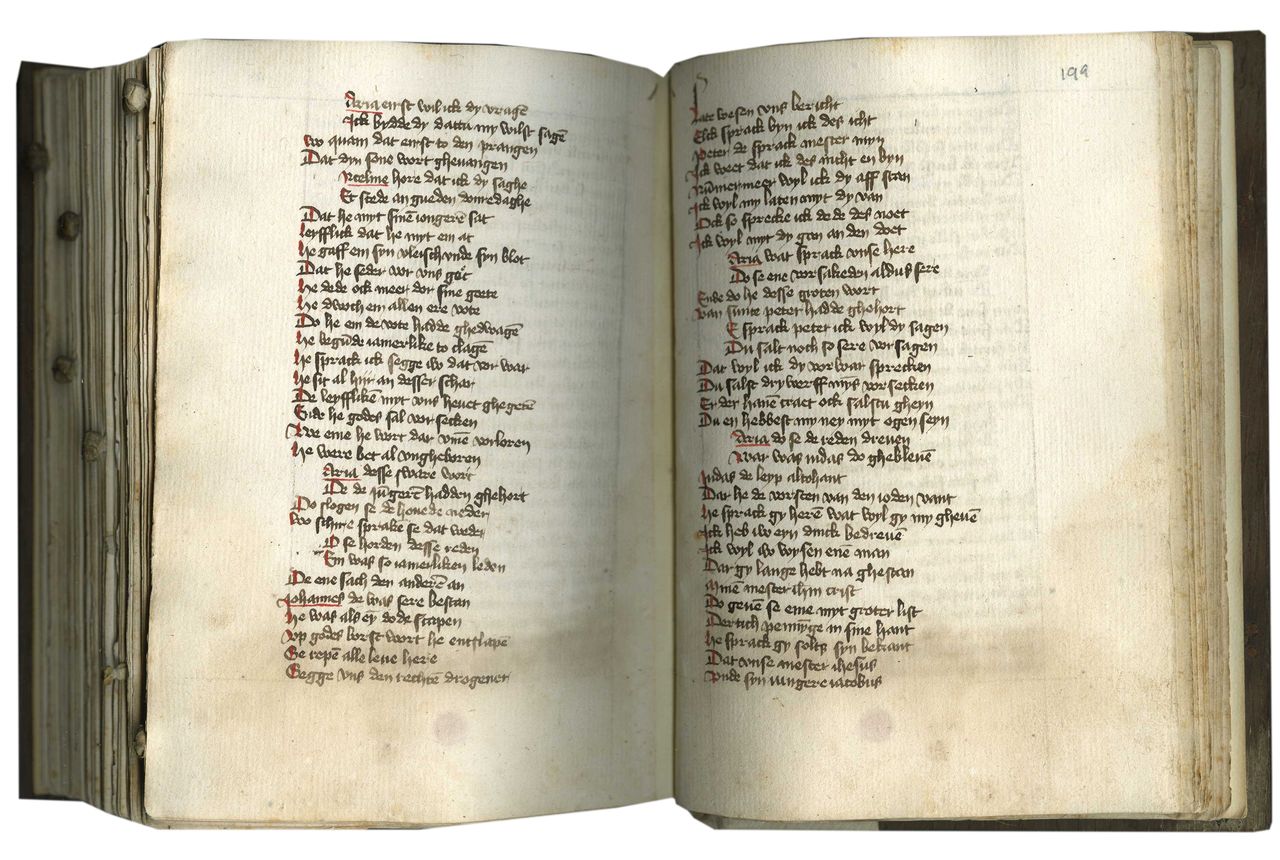 Aria eirst wil ick dy vragē
Ick bydde dy dattu my wilst sagē
Wo quam dat eirst to den prangen
Dat dyn sone wort ghevangen
Nselme hore dat ick dy saghe
Et schede an guden donredaghe
Dat he myt sinē iongerē sat
leyfflick dat he myt em at
he gaff em syn vleisch vnde syn blot
Dat he seder vor vns got
he dede ock meer dor sine goete
he dwoch em allen ere vote
Do he em de vote hadde ghedwagē
he begūde iamerlike to clagē
he sprack ick segge iw dat vor war
he sit al hiir an desser schar
De leyfflikē myt vns hevet ghegetē
Eide he godes sal vorsecken
Wee eme he wort dar vmē vorloren
he were bet al vngheboren
Aria desse sware wort
De de iūgerē hadden ghehort
Do slogen se de hovede neder
Wo schire sprake se dat weder
O se horden desse reden
Em was so iamerliken leden
De ene sach den anderē an
Johannes de was sere bestan
he was als ey dode scapen
vp godes borst wort he entslapē
Se repē alle leve here
Segge vns den rechtē drogener
199
Late wesen vns bericht
Elck sprack byn ick des icht
Peter de sprack mester myn
Ick weet dat ick des nicht en byn
Nūmermeer wyl ick dy aff stan
Ick wyl my laten myt dy van
Ock so sprecke ick de de des noet
Ick wyl myt dy gon an den doet
Aria wat sprack vnse here
Do se ene vorsakeden aldus sere
Ende do he desse groten wort
van sunte peter hadde ghehort
E sprack peter ick wyl dy sagen
Du salt noch so sere vorsagen
Dat wyl ick dy vorwar sprecken
Du salst dry werff myns vorsecken
Er der hanē craet ock salstu gheyn
Du en hebbest my ney myt ogen seyn
Aria do se de reden dreven
War was iudas do gheblevē
Judas de leyp altohant
Dar he de vorsten van den ioden vant
he sprack gy herē wat wyl gy my ghevē
Ick heb iw eyn dinck bedrevē
Ick wyl iw wysen enē man
Dar gy lange hebt na ghestan
Minē mester ihm crist
Do gevē se eme myt groter list
Dertich pennīge in sine hant
he sprack gy solts syn bekant
Dat vnse mester ihesus
vnde syn iungere iacobus